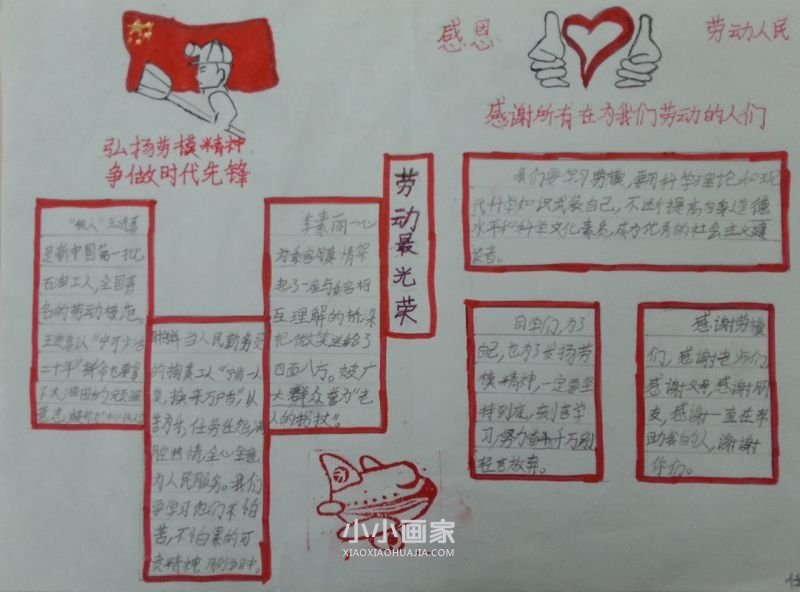 弘扬劳模精神
争做时代先锋
感恩
劳动人民
感谢所有在为我们劳动的人们
劳动最光荣
"铁人"王进喜
是新中国第一批
石油工人,全国著
名的劳动模范。
王进喜以"宁可少活
二十年"拼命也要拿
下大油田的
意志
当人民勤务员
的掏粪工以"宁肯一人
脏,换来万户洁",以
苦为乐,任劳任怨,满
腔热情,全心全意
为人民服务。我们
要学习他们不怕
苦,不怕累的可
贵精神
李素丽一心
为乘客
起了一座与乘客相
互理解的桥梁
把微笑送给了
四面八方。被广
大群众誉为"老
人的拐杖"。
我们要学习劳模,要用科学理论和现
代科学知识武装自己,不断提高自身道德
水平和科学文化素质,成为优秀的社会主义建
设者。
同学们,为了
自己,也为了发扬劳
模精神,一定要坚
持到底,刻苦学
习,努力奋斗千万别
轻言放弃。
感谢劳模
们,感谢老师们
感谢父母,感谢朋
友,感谢一直在帮
助我的人,谢谢
你们。
小小画家
XIAOXIAOHUAJIA.COM